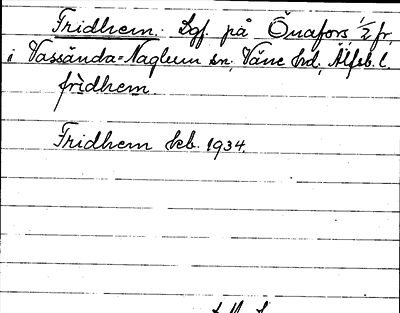 Fridhem. Lgf. på Önafors 1/2 fr,
i Vassända-Naglum sn, Väne hd, Älfsb. l.
frìdhem.
Fridhem kb. 1934.